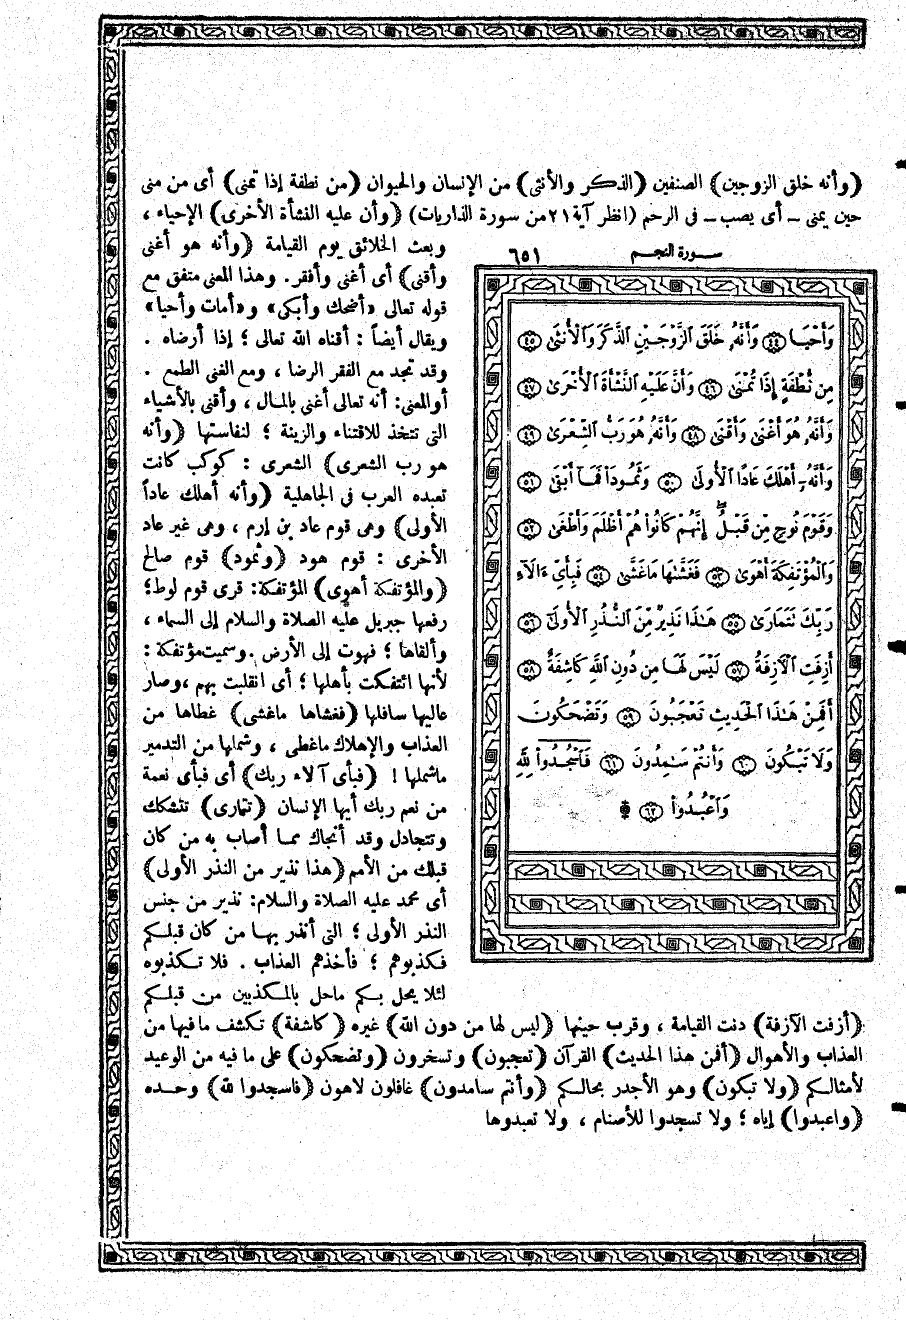 (وأنه خلق الزوجين) الصنفين (الذكر والأنثى) من الإنسان والحيوان (من نطفة إذا تمنى) أى من منى
حين يمنى ــ أى يصب ــ فى الرحم (انظر آية ٢١ من سورة الذاريات) (وأن عليه النشأة الأخرى) الإحياء ،
وبعث الخلائق يوم القيامة (وأنه هو أغنى
وأقنى) أى أغنى وأفقر. وهذا المعنى متفق مع
قوله تعالى «أضحك وأبكى» و«أمات وأحيا»
ويقال أيضاً : أقناه الله تعالى ؛ إذا أرضاه .
وقد تجد مع الفقر الرضا ، ومع الغنى الطمع .
أو المعنى: أنه تعالى أغنى بالمال ، وأقنى بالأشياء
التى تتخذ للاقتناء والزينة ؛ لنفاستها (وأنه
هو رب الشعرى) الشعرى : كوكب كانت
تعبده العرب فى الجاهلية (وأنه أهلك عاداً
الأولى) وهى قوم عاد بن إرم ، وهى غير عاد
الأخرى : قوم هود (وثمود) قوم صالح
(والمؤتفكة أهوى) المؤتفكة: قرى قوم لوط؛
رفعها جبريل عليه الصلاة والسلام إلى السماء ،
وألقاها ؛ فهوت إلى الأرض . وسميت مؤتفكة :
لأنها ائتفكت بأهلها ؛ أى انقلبت بهم ، وصار
عاليها سافلها (فغشاها ماغشى) غطاها من
العذاب والإهلاك ماغطى ، وشملها من التدمير
ماشملها ! (فبأى آلاء ربك) أى فبأى نعمة
من نعم ربك أيها الإنسان (تتمارى) تتشكك
وتتجادل وقد أنجاك مما أصاب به من كان
قبلك من الأمم (هذا نذير من النذر الأولى)
أى محمد عليه الصلاة والسلام: نذير من جنس
النذر الأولى ؛ التى أنذر بها من كان قبلكم
فكذبوهم ؛ فأخذهم العذاب . فلا تكذبوه
لئلا يحل بكم ماحل بالمكذبين من قبلكم
سورة النجم ٦٥١
وَأَحْيَا ٤٤ وَأَنَّهُۥ خَلَقَ ٱلزَّوْجَيْنِ ٱلذَّكَرَ وَٱلْأُنثَىٰ ٤٥
مِن نُّطْفَةٍ إِذَا تُمْنَىٰ ٤٦ وَأَنَّ عَلَيْهِ ٱلنَّشْأَةَ ٱلْأُخْرَىٰ ٤٧
وَأَنَّهُۥ هُوَ أَغْنَىٰ وَأَقْنَىٰ ٤٨ وَأَنَّهُۥ هُوَ رَبُّ ٱلشِّعْرَىٰ ٤٩
وَأَنَّهُۥٓ أَهْلَكَ عَادًا ٱلْأُولَىٰ ٥٠ وَثَمُودَا۟ فَمَآ أَبْقَىٰ ٥١
وَقَوْمَ نُوحٍ مِّن قَبْلُ ۖ إِنَّهُمْ كَانُوا۟ هُمْ أَظْلَمَ وَأَطْغَىٰ ٥٢
وَٱلْمُؤْتَفِكَةَ أَهْوَىٰ ٥٣ فَغَشَّىٰهَا مَا غَشَّىٰ ٥٤ فَبِأَىِّ ءَالَآءِ
رَبِّكَ تَتَمَارَىٰ ٥٥ هَٰذَا نَذِيرٌ مِّنَ ٱلنُّذُرِ ٱلْأُولَىٰٓ ٥٦
أَزِفَتِ ٱلْآزِفَةُ ٥٧ لَيْسَ لَهَا مِن دُونِ ٱللَّهِ كَاشِفَةٌ ٥٨
أَفَمِنْ هَٰذَا ٱلْحَدِيثِ تَعْجَبُونَ ٥٩ وَتَضْحَكُونَ
وَلَا تَبْكُونَ ٦٠ وَأَنتُمْ سَٰمِدُونَ ٦١ فَٱسْجُدُوا۟ لِلَّهِ
وَٱعْبُدُوا۟ ۩ ٦٢
(أزفت الآزفة) دنت القيامة ، وقرب حينها (ليس لها من دون الله) غيره (كاشفة) تكشف ما فيها من
العذاب والأهوال (أفمن هذا الحديث) القرآن (تعجبون) وتسخرون (وتضحكون) على ما فيه من الوعيد
لأمثالكم (ولا تبكون) وهو الأجدر بحالكم (وأنتم سامدون) غافلون لاهون (فاسجدوا لله) وحده
(واعبدوا) إياه ؛ ولا تسجدوا للأصنام ، ولا تعبدوها